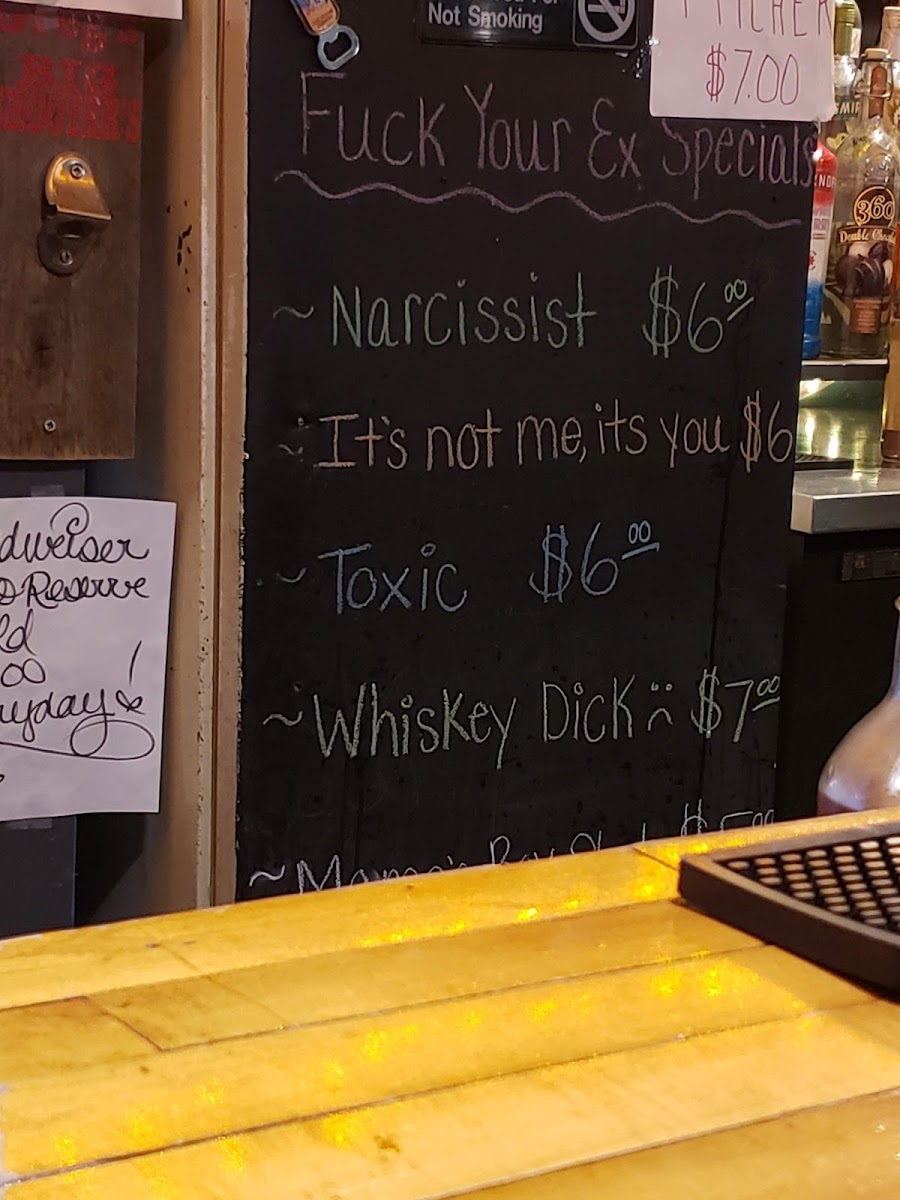 Not Smoking
PITCHER
$7.00
BIG
SHOOTERS
Fuck Your Ex Specials
~ Narcissist $6.00
~ It's not me, its you $6
~ Toxic $6.00
~ Whiskey Dick :( $7.00
~ Mama's Boy $5.00
dweiser
Reserve
ld
00
ryday!
360
Double Choc